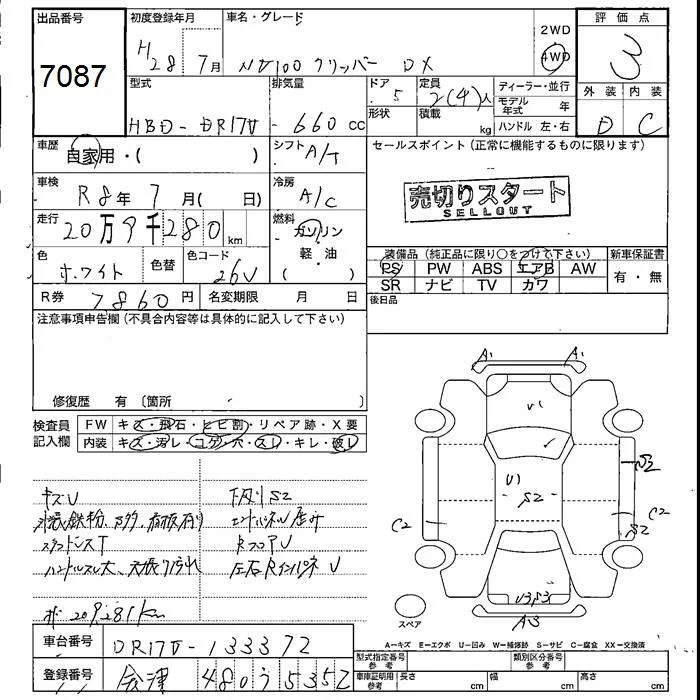 出品番号
7087
初度登録年月
H 28年 7月
車名・グレード
NV100 クリッパー DX
2WD
4WD
評価点
3
外装 内装
D C
型式
HBD-DR17V
排気量
660cc
ドア
5
形状
定員
2(4)人
積載
kg
ディーラー・並行
モデル年式 年
ハンドル 左・右
車歴
自家用・( )
シフト
A/T
車検
R8年 7月( 日)
冷房
A/C
走行
20万9千280km
燃料
ガソリン
軽・油
( )
色
ホワイト
色替
色コード
26U
R券 7860円
名変期限 月 日
セールスポイント(正常に機能するものに限ります)
売切りスタート
SELLOUT
装備品(純正品に限り○をつけて下さい)
PS PW ABS エアB AW
SR ナビ TV カワ
新車保証書
有・無
後日品
注意事項申告欄(不具合内容等は具体的に記入して下さい)
修復歴 有 〔箇所
検査員記入欄
FW キズ・飛石・ヒビ割・リペア跡・X要
内装 キズ・汚レ・コゲ・穴・スレ・キレ・破レ
キズU
下廻りS2
スタッドレスT
RフロアU
ハンドルスレ大、天張り汚れ
左右RインパネU
209,281km
A1
A1
U1
U1
S2
S2
C2
C2
S2
A3
スペア
A=キズ E=エクボ U=凹み W=補修跡 S=サビ C=腐食 XX=交換済
車台番号
DR17V-133372
登録番号
会津 480 う 5352
型式指定番号 参考
類別区分番号 参考
車庫証明用 参考
長さ cm
幅 cm
高さ cm